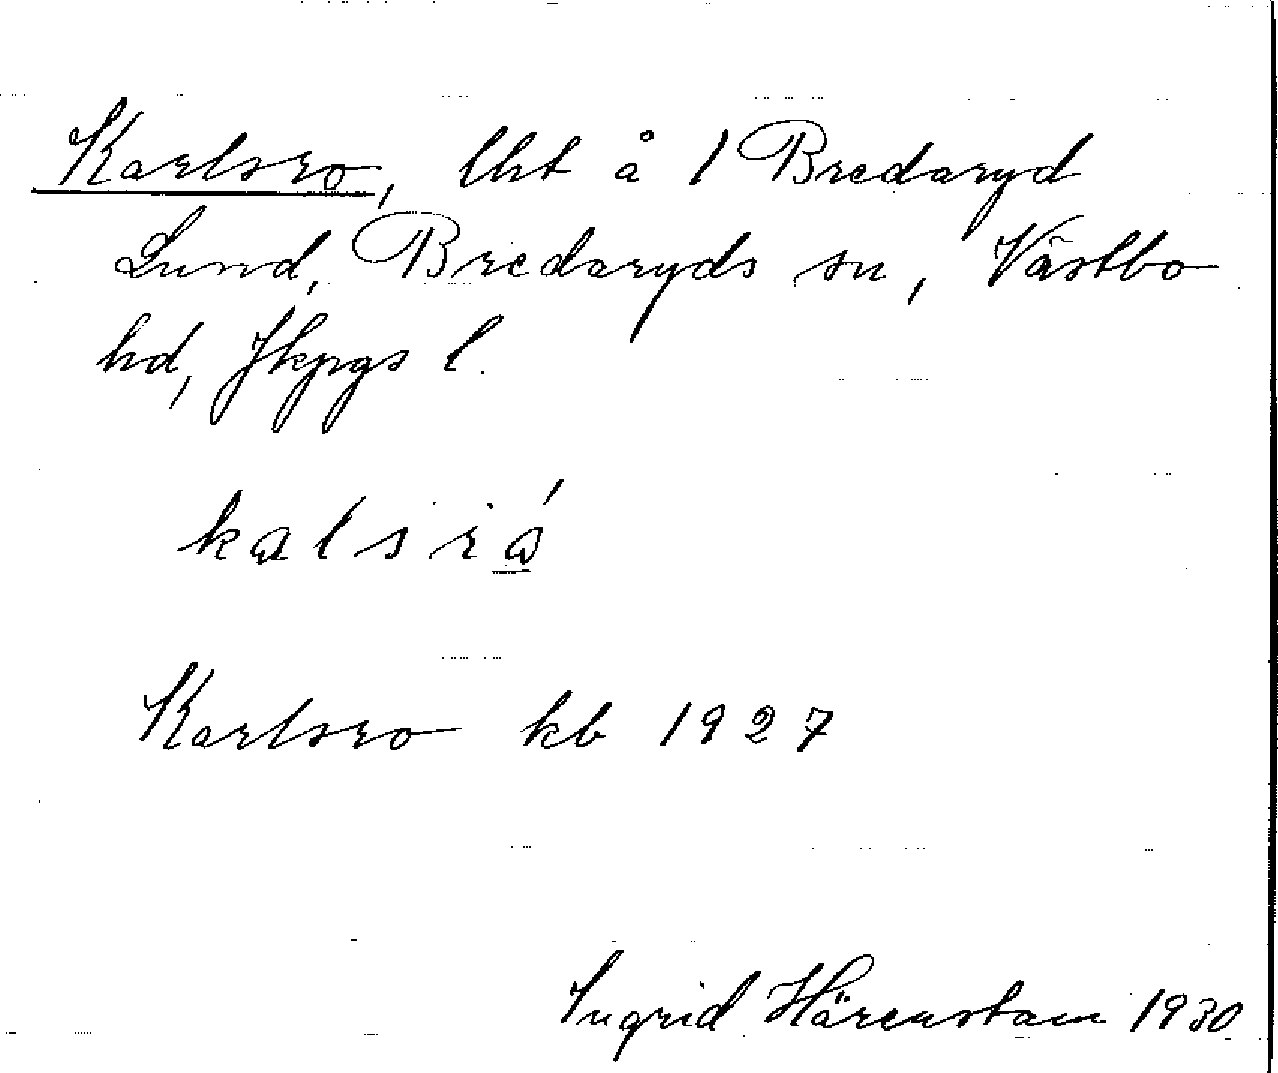 Karlsro, lht å 1 Bredaryd
Lund, Bredaryds sn, Västbo
hd, Jkpgs l.
Karlsro kb 1927
Ingrid Härenstam 1930